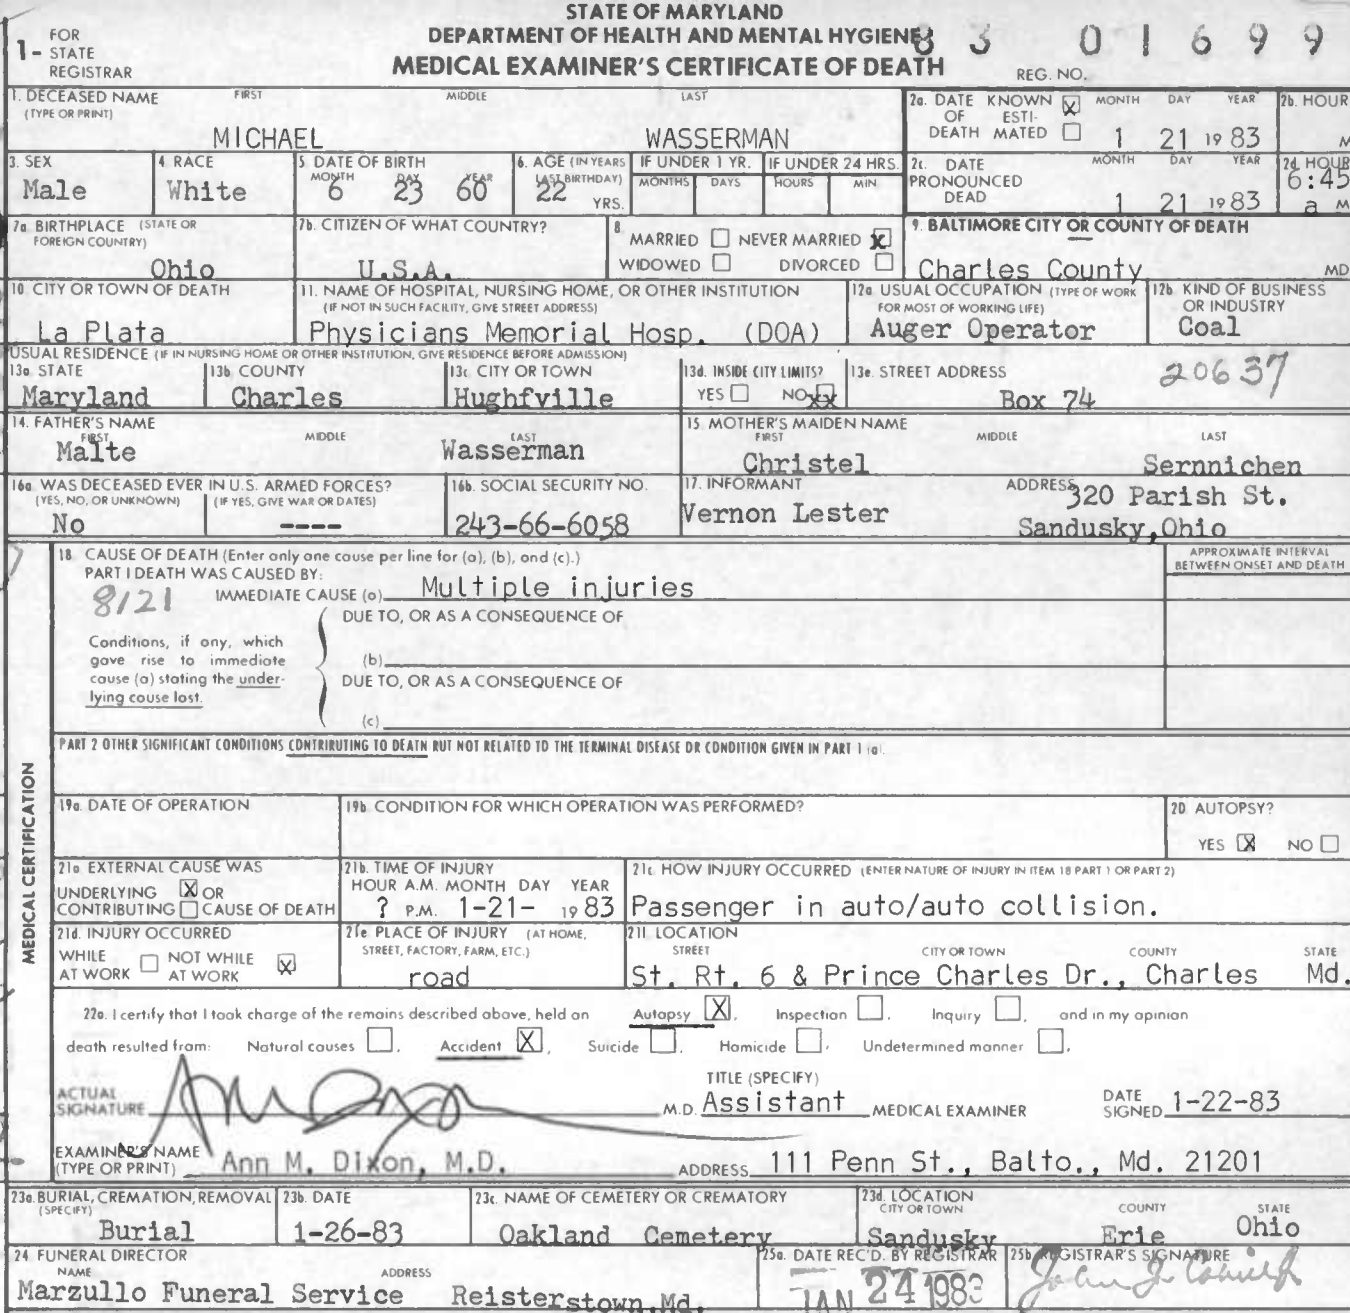 STATE OF MARYLAND
DEPARTMENT OF HEALTH AND MENTAL HYGIENE
MEDICAL EXAMINER'S CERTIFICATE OF DEATH
1- FOR STATE REGISTRAR
83 01699
REG. NO.
1. DECEASED NAME (TYPE OR PRINT) FIRST MIDDLE LAST
MICHAEL WASSERMAN
2a. DATE OF DEATH KNOWN X ESTIMATED MONTH DAY YEAR
1 21 1983
2b. HOUR
M
3. SEX
Male
4. RACE
White
5. DATE OF BIRTH MONTH DAY YEAR
6 23 60
6. AGE (IN YEARS LAST BIRTHDAY)
22 YRS.
IF UNDER 1 YR. MONTHS DAYS
IF UNDER 24 HRS. HOURS MIN
2c. DATE PRONOUNCED DEAD MONTH DAY YEAR
1 21 1983
2d. HOUR
6:45
a M
7a. BIRTHPLACE (STATE OR FOREIGN COUNTRY)
Ohio
7b. CITIZEN OF WHAT COUNTRY?
U.S.A.
8. MARRIED NEVER MARRIED X
WIDOWED DIVORCED
9. BALTIMORE CITY OR COUNTY OF DEATH
Charles County MD
10. CITY OR TOWN OF DEATH
La Plata
11. NAME OF HOSPITAL, NURSING HOME, OR OTHER INSTITUTION
(IF NOT IN SUCH FACILITY, GIVE STREET ADDRESS)
Physicians Memorial Hosp. (DOA)
12a. USUAL OCCUPATION (TYPE OF WORK FOR MOST OF WORKING LIFE)
Auger Operator
12b. KIND OF BUSINESS OR INDUSTRY
Coal
USUAL RESIDENCE (IF IN NURSING HOME OR OTHER INSTITUTION, GIVE RESIDENCE BEFORE ADMISSION)
13a. STATE
Maryland
13b. COUNTY
Charles
13c. CITY OR TOWN
Hughfville
13d. INSIDE CITY LIMITS?
YES NO XX
13e. STREET ADDRESS
Box 74
20637
14. FATHER'S NAME FIRST MIDDLE LAST
Malte Wasserman
15. MOTHER'S MAIDEN NAME FIRST MIDDLE LAST
Christel Sernnichen
16a. WAS DECEASED EVER IN U.S. ARMED FORCES?
(YES, NO, OR UNKNOWN) (IF YES, GIVE WAR OR DATES)
No ----
16b. SOCIAL SECURITY NO.
243-66-6058
17. INFORMANT
Vernon Lester
ADDRESS
320 Parish St.
Sandusky, Ohio
MEDICAL CERTIFICATION
18. CAUSE OF DEATH (Enter only one cause per line for (a), (b), and (c).)
APPROXIMATE INTERVAL BETWEEN ONSET AND DEATH
PART I DEATH WAS CAUSED BY:
8121
IMMEDIATE CAUSE (a) Multiple injuries
DUE TO, OR AS A CONSEQUENCE OF
Conditions, if any, which gave rise to immediate cause (a) stating the underlying cause last.
(b)
DUE TO, OR AS A CONSEQUENCE OF
(c)
PART 2 OTHER SIGNIFICANT CONDITIONS CONTRIBUTING TO DEATH BUT NOT RELATED TO THE TERMINAL DISEASE OR CONDITION GIVEN IN PART 1 (a)
19a. DATE OF OPERATION
19b. CONDITION FOR WHICH OPERATION WAS PERFORMED?
20. AUTOPSY?
YES X NO
21a. EXTERNAL CAUSE WAS
UNDERLYING X OR
CONTRIBUTING CAUSE OF DEATH
21b. TIME OF INJURY
HOUR A.M. MONTH DAY YEAR
? P.M. 1-21- 1983
21c. HOW INJURY OCCURRED (ENTER NATURE OF INJURY IN ITEM 18 PART 1 OR PART 2)
Passenger in auto/auto collision.
21d. INJURY OCCURRED
WHILE AT WORK NOT WHILE AT WORK X
21e. PLACE OF INJURY (AT HOME, STREET, FACTORY, FARM, ETC.)
road
21f. LOCATION
STREET CITY OR TOWN COUNTY STATE
St. Rt. 6 & Prince Charles Dr., Charles Md.
22a. I certify that I took charge of the remains described above, held an Autopsy X, Inspection , Inquiry , and in my opinion
death resulted from: Natural causes , Accident X, Suicide , Homicide , Undetermined manner .
ACTUAL SIGNATURE
M.D.
TITLE (SPECIFY)
Assistant MEDICAL EXAMINER
DATE SIGNED 1-22-83
EXAMINER'S NAME (TYPE OR PRINT) Ann M. Dixon, M.D.
ADDRESS 111 Penn St., Balto., Md. 21201
23a. BURIAL, CREMATION, REMOVAL (SPECIFY)
Burial
23b. DATE
1-26-83
23c. NAME OF CEMETERY OR CREMATORY
Oakland Cemetery
23d. LOCATION
CITY OR TOWN COUNTY STATE
Sandusky Erie Ohio
24 FUNERAL DIRECTOR
NAME ADDRESS
Marzullo Funeral Service Reisterstown, Md.
25a. DATE REC'D. BY REGISTRAR
JAN 24 1983
25b. REGISTRAR'S SIGNATURE